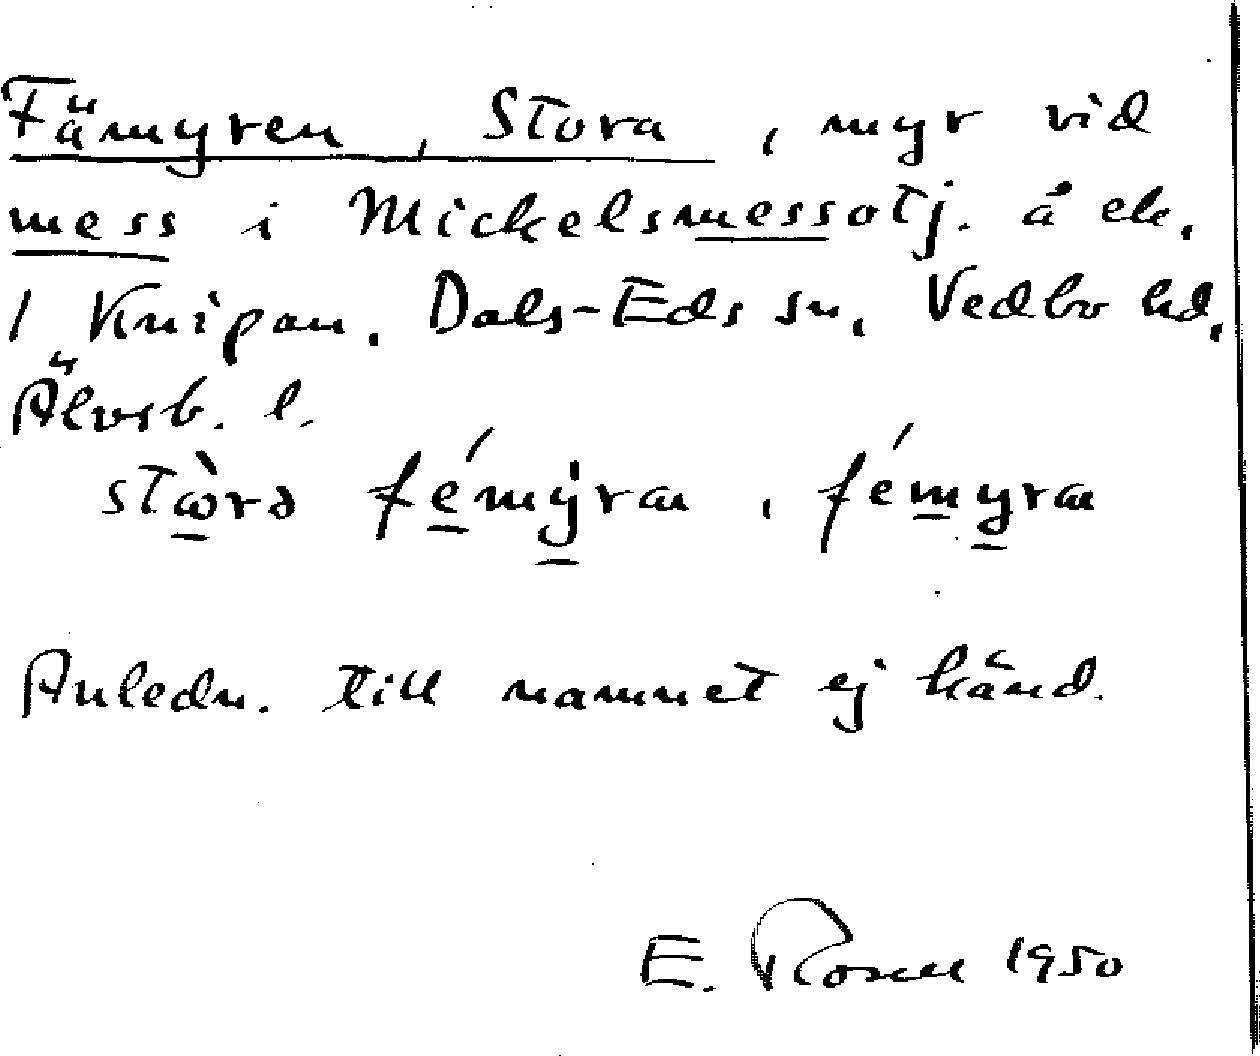 Fämyren, Stora, myr vid
mess i Mickelsmessotj. å ek.
1 Knipan. Dals-Eds sn, Vedbo hd,
Älvsb. l.
stɷ̀rə fémẏra, fémyra
Anledn. till namnet ej känd.
E. Rosell 1950